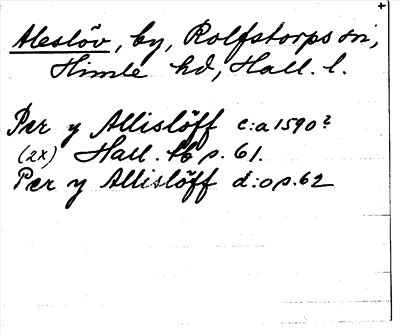 Aleslöv, by, Rolfstorps sn,
Himle hd, Hall. l.
Per y Allislöff c:a 1590?
(2x) Hall. tb p. 61.
Per y Allislöff d:o p. 62